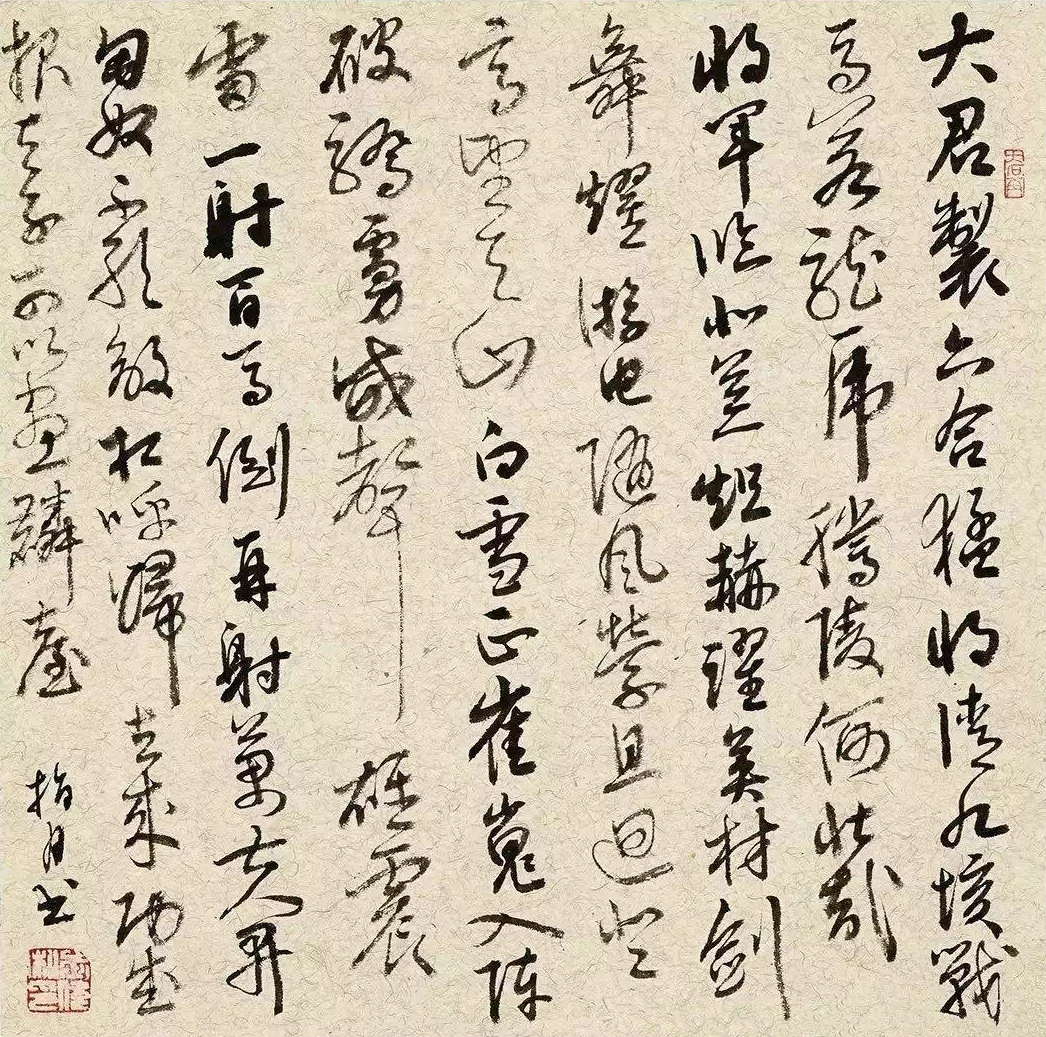 大君製六合猛将清九垓戰
馬若龍虎騰陵何壯哉
将軍臨北荒烜赫耀英材劍
舞燿游电随風縈且迴登
高望天山白雪正崔嵬入陣
破驕虜威聲雄震
雷一射百馬倒再射萬夫開
匈奴不敢敵相呼歸去来功成
報天子可以畫麟臺
指月书